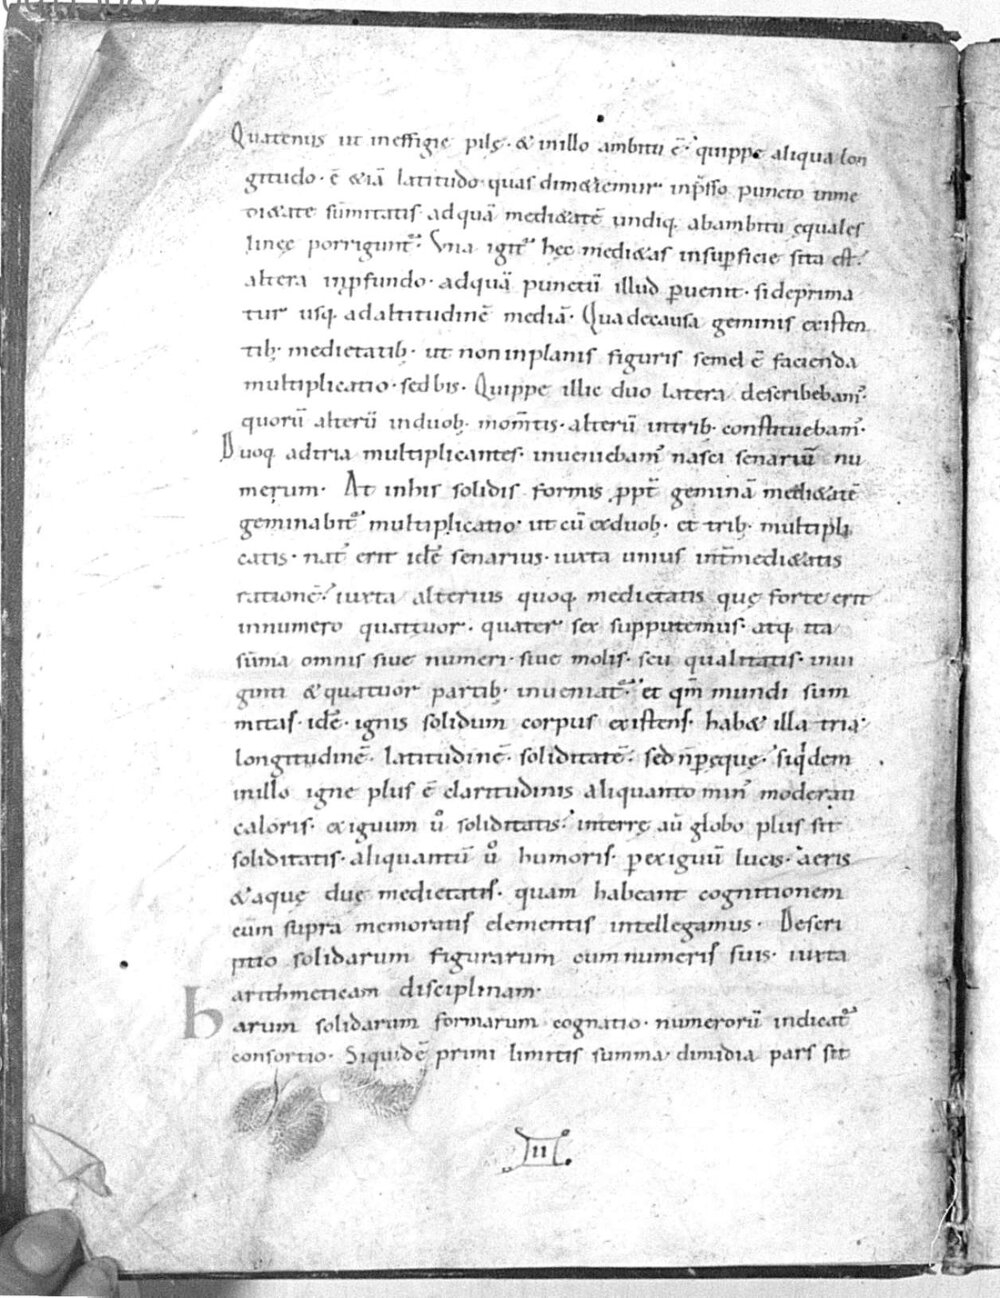 Quatenus ut ineffigie pilę· & inillo ambitu ē· quippe aliqua lon
gitudo· ē &iā latitudo quas dim&iemur inp̄sso puncto inme
di&ate sūmitatis adquā medi&atē undiq· abambitu ęquales
linęe porrigunt᷑· Una igit᷑ hęc medi&as insup̱ficie sita est·
altera inp̱fundo· adquā punctū illud ꝑuenit· sideprima
tur usq· adaltitudinē mediā· Quadecausa geminis existen
tib; medietatib; ut noninplanis figuris semel ē facienda
multiplicatio· sedbis· Quippe illic duo latera describebam᷑·
quorū alterū induob; mom̄tis· alterū intrib; constituebam᷑·
Duoq· adtria multiplicantes· inueniebam᷑ nasci senariū nu
merum· At inhis solidis formis ꝓpt̄ geminā medi&atē
geminabit᷑ multiplicatio· ut cū exduob; et trib; multipli
catis· nat᷑ erit idē senarius· iuxta unius int̄medi&atis
rationē· iuxta alterius quoq· medietatis quę forte erit
innumero quattuor· quater sex supputemus· atq· ita
sūma omnis siue numeri· siue molis· seu qualitatis· inui
ginti &quatuor partib; inueniat᷑· et qm̄ mundi sum
mitas· idē· ignis solidum corpus existens· hab& illa tria·
longitudinē· latitudinē· soliditatē· sedn̄pęquę· siqdem
inillo igne plus ē claritudinis aliquanto min᷒ moderati
caloris· exiguum uͦ soliditatis· interrę aū globo plus sit
soliditatis· aliquantū uͦ humoris· ꝑexiguū lucis· aeris
&aquę duę medietates· quam habeant cognitionem
cūm supra memoratis elementis intellegamus· Descri
ptio solidarum figurarum cum numeris suis· iuxta
arithmeticam disciplinam·
harum solidarum formarum cognatio· numerorū indicat᷑
consortio· Siquidē primi limitis summa dimidia pars sit
II